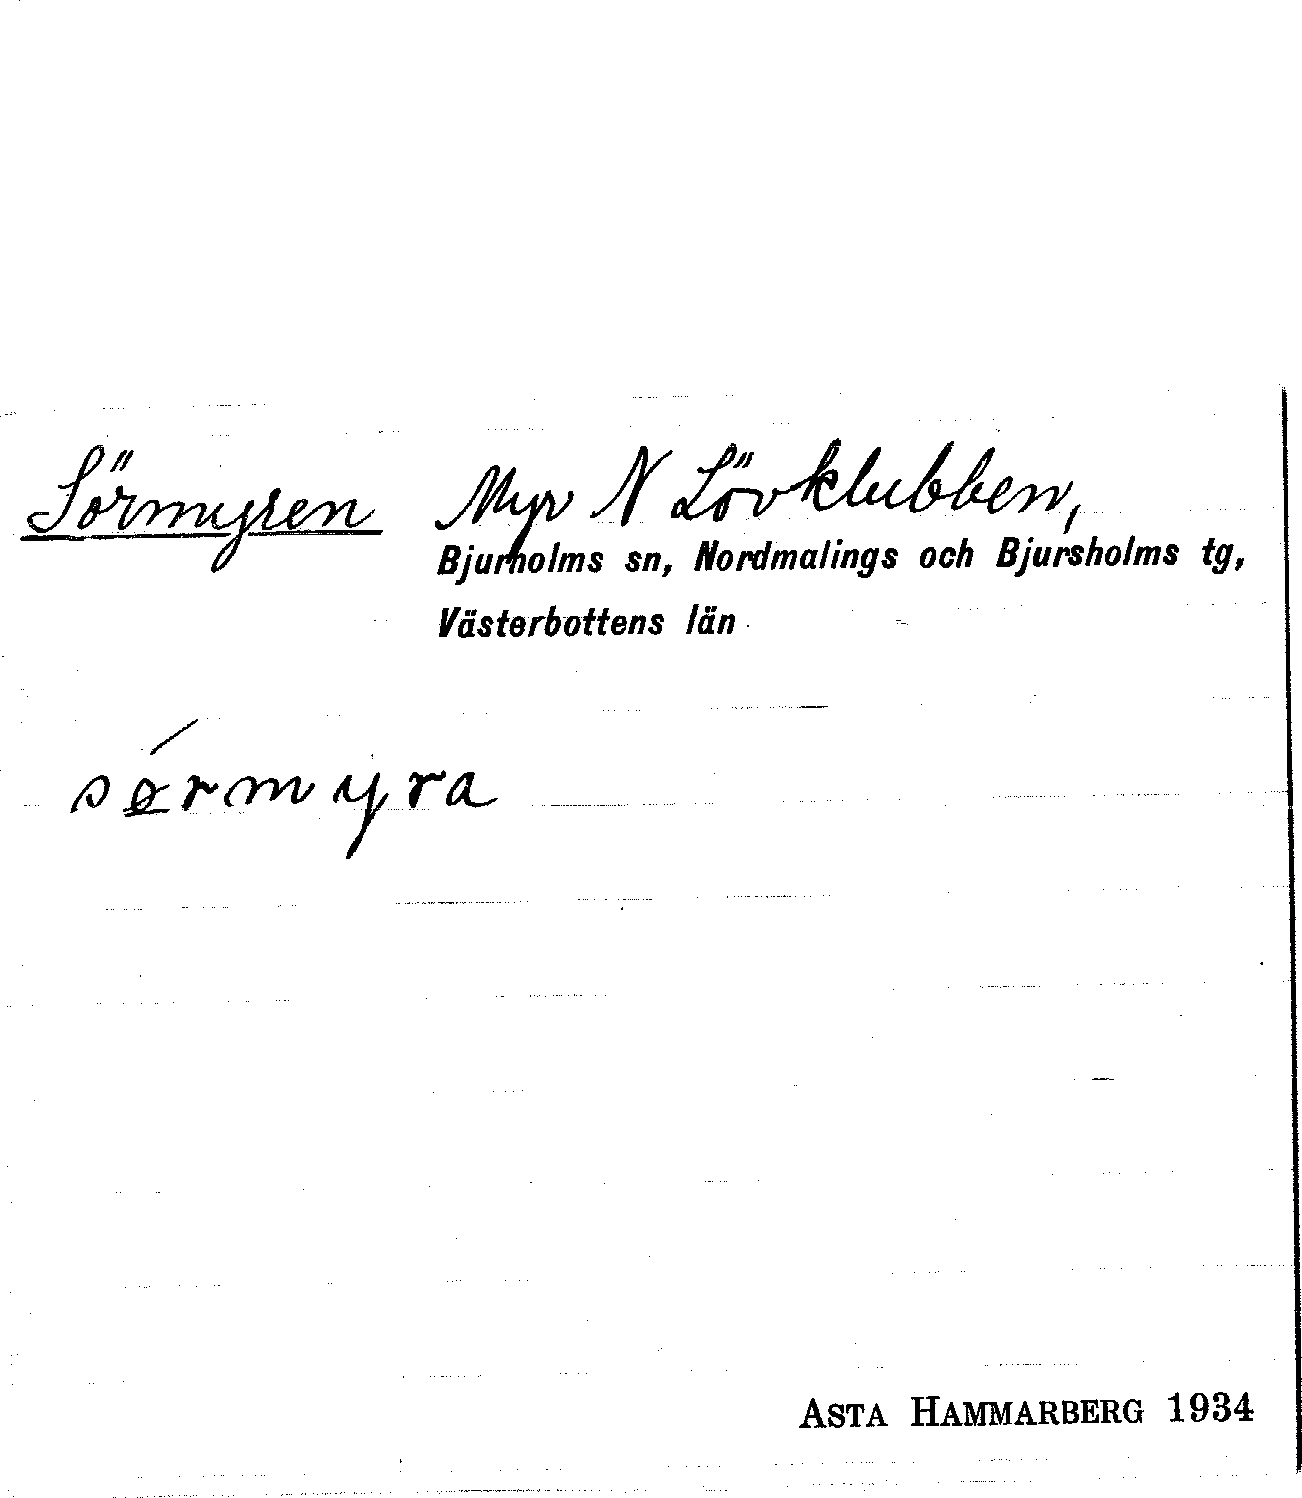 Sörmyren Myr N Lövklubben,
Bjurholms sn, Nordmalings och Bjursholms tg,
Västerbottens län
sǿrmyra
ASTA HAMMARBERG 1934